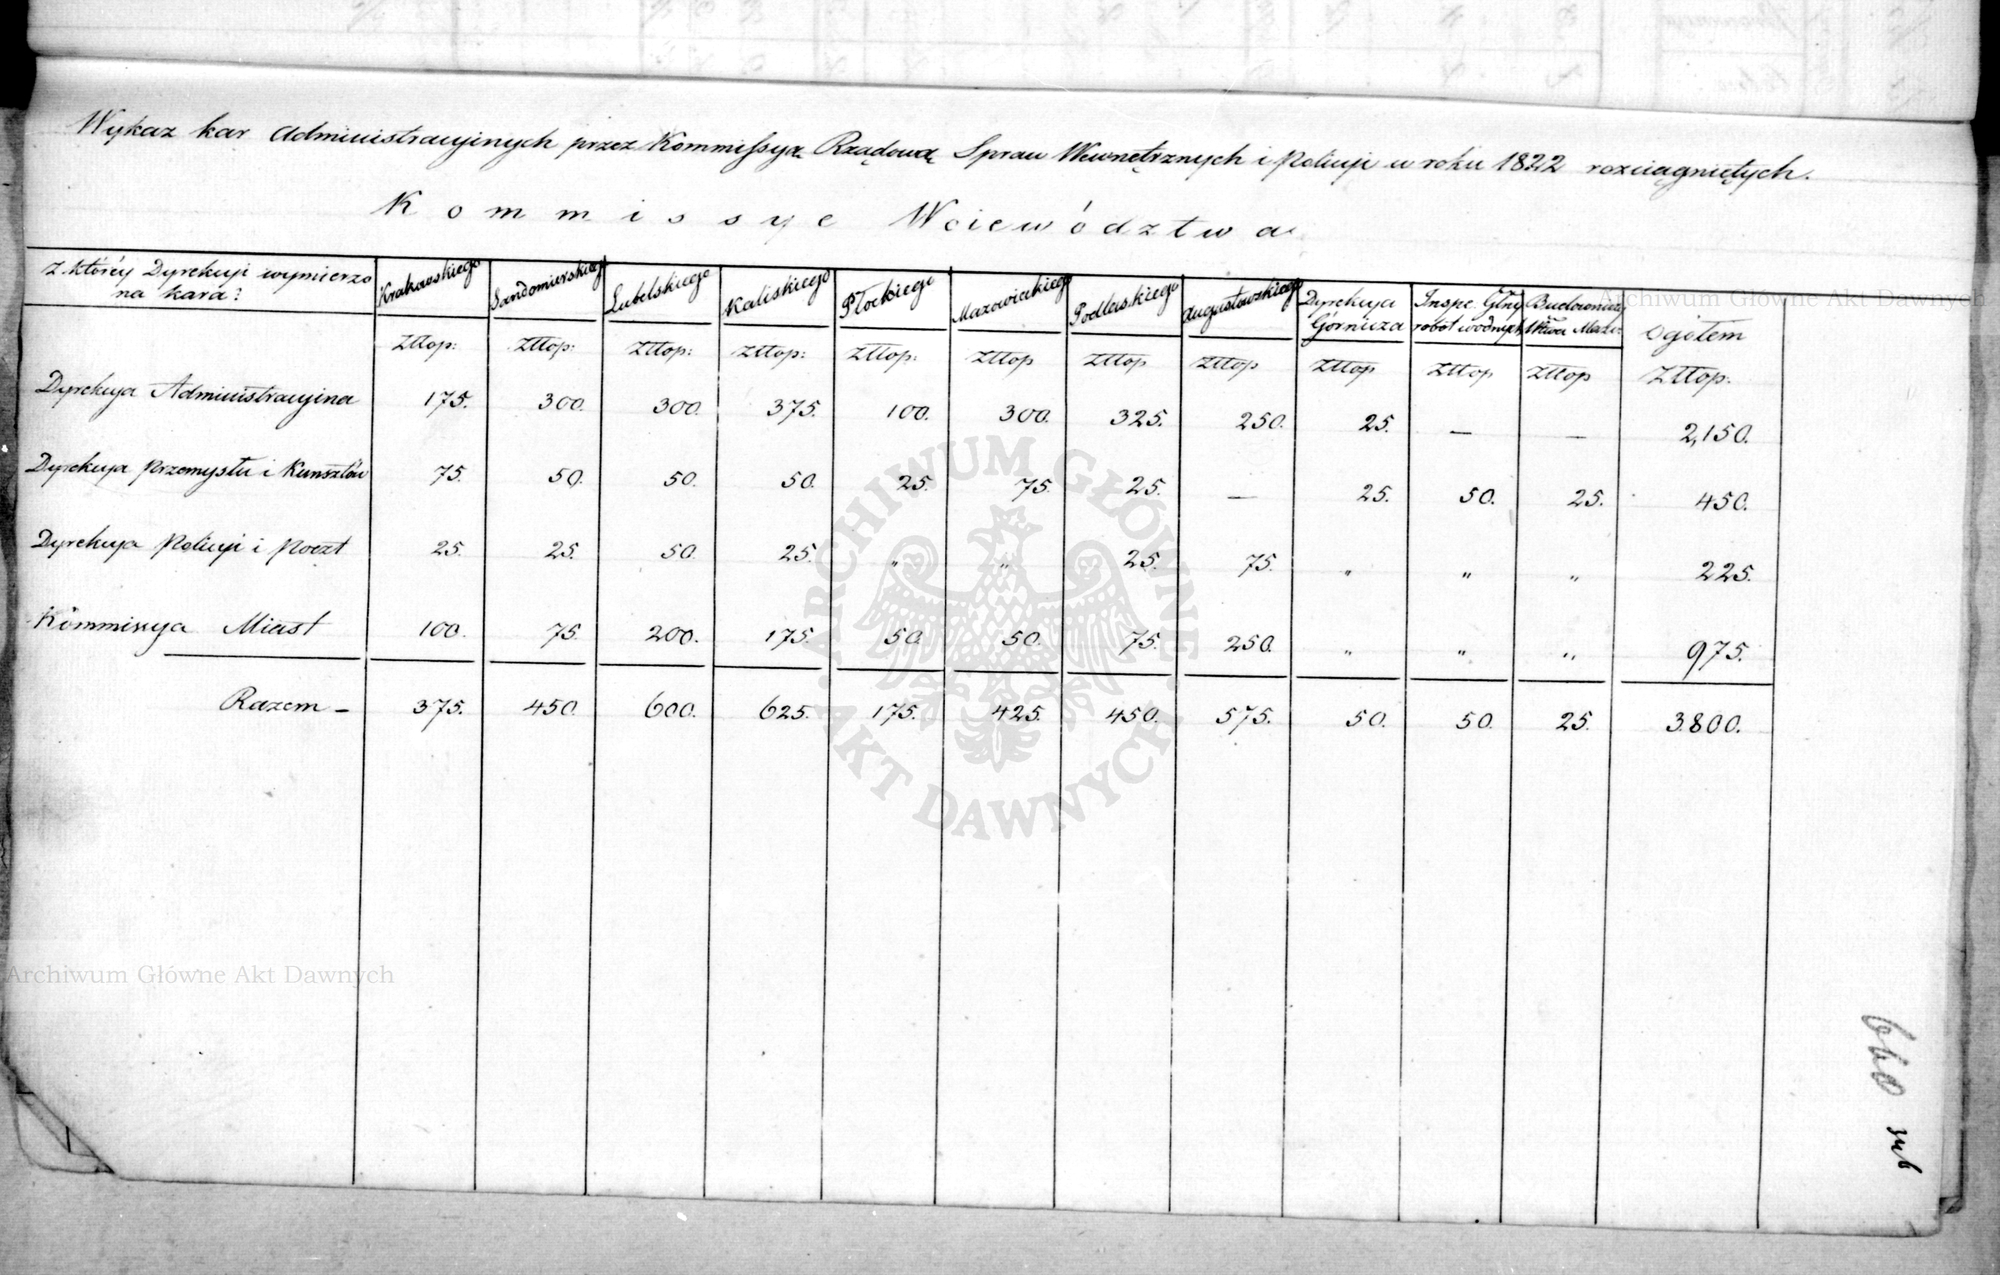 Wykaz kar Administracyinych przez Kommissyą Rządową Spraw Wewnętrznych i Policyi w roku 1822 rozciągniętych.
Kommissye Woiewództwa
z którey Dyrekcyi wymierzo
na kara?
Krakowskiego Sandomierskiego Lubelskiego Kaliskiego Płockiego Mazowieckiego Podlaskiego Augustowskiego Dyrekcya Górnicza Inspe. Głny robot wodnych Budowniczy Wtwa Mazo: Ogółem
Złłop: Złłop: Złłop: Złłop: Złłop: Złłop Złłop Złłop Złłop Złłop Złłop Złłop:
Dyrekcya Administracyina 175. 300. 300. 375. 100. 300. 325. 250. 25. — — 2,150.
Dyrekcya Przemysłu i Kunsztów 75. 50. 50. 50. 25. 75. 25. — 25. 50. 25. 450.
Dyrekcya Policyi i Poczt 25. 25. 50. 25. „ „ 25. 75. „ „ „ 225.
Kommissya Miast 100. 75. 200. 175. 50. 50. 75. 250. „ „ „ 975.
Razem – 375. 450. 600. 625. 175. 425. 450. 575. 50. 50. 25. 3800.
ARCHIWUM GŁÓWNE AKT DAWNYCH
Archiwum Główne Akt Dawnych
Archiwum Główne Akt Dawnych